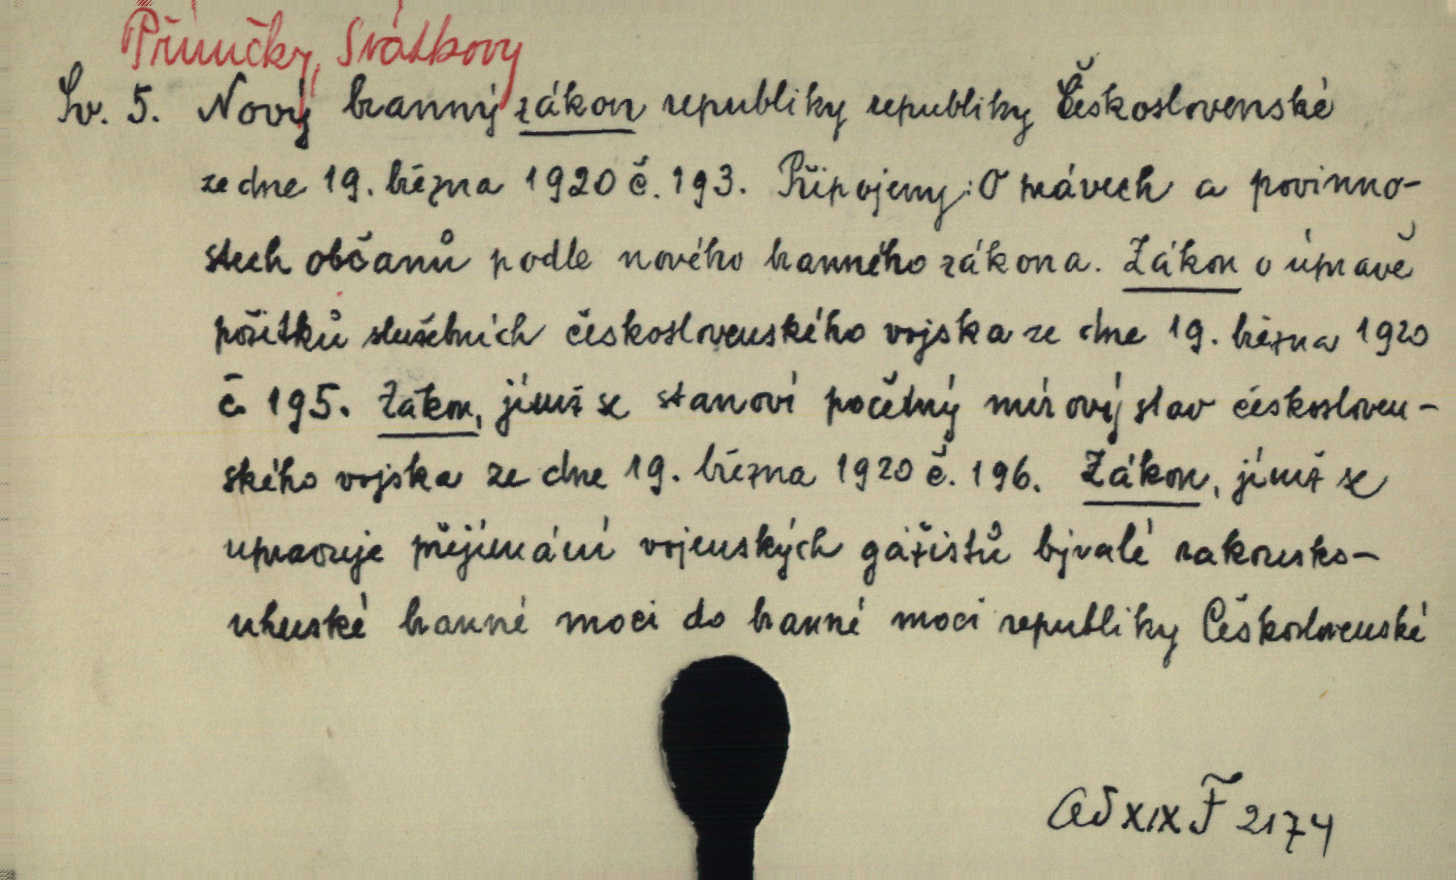 Příručky, Svátkovy
Sv. 5. Nový branný zákon republiky republiky Československé
ze dne 19. března 1920 č. 193. Připojeny: O právech a povinno-
stech občanů podle nového branného zákona. Zákon o úpravě
požitků služebních československého vojska ze dne 19. března 1920
č 195. Zákon, jímž se stanoví početný mírový stav českosloven-
ského vojska ze dne 19. března 1920 č. 196. Zákon, jímž se
upravuje přejímání vojenských gážistů bývalé rakousko-
uherské branné moci do branné moci republiky Československé
XIX F 2174